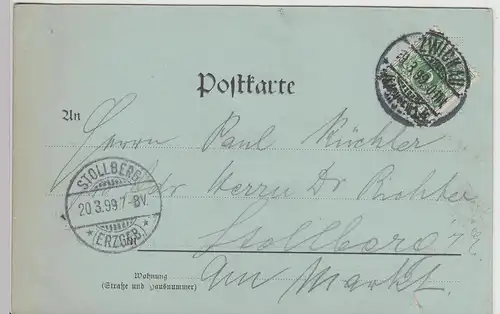 Postkarte
ZWICKAU
An
Herrn Paul Küchler
Adr Herrn Dr Richter
STOLLBERG
20.3.99.7-8V.
* (ERZGEB.) *
Stollberg
Am Markt.
Wohnung
(Straße und Hausnummer)